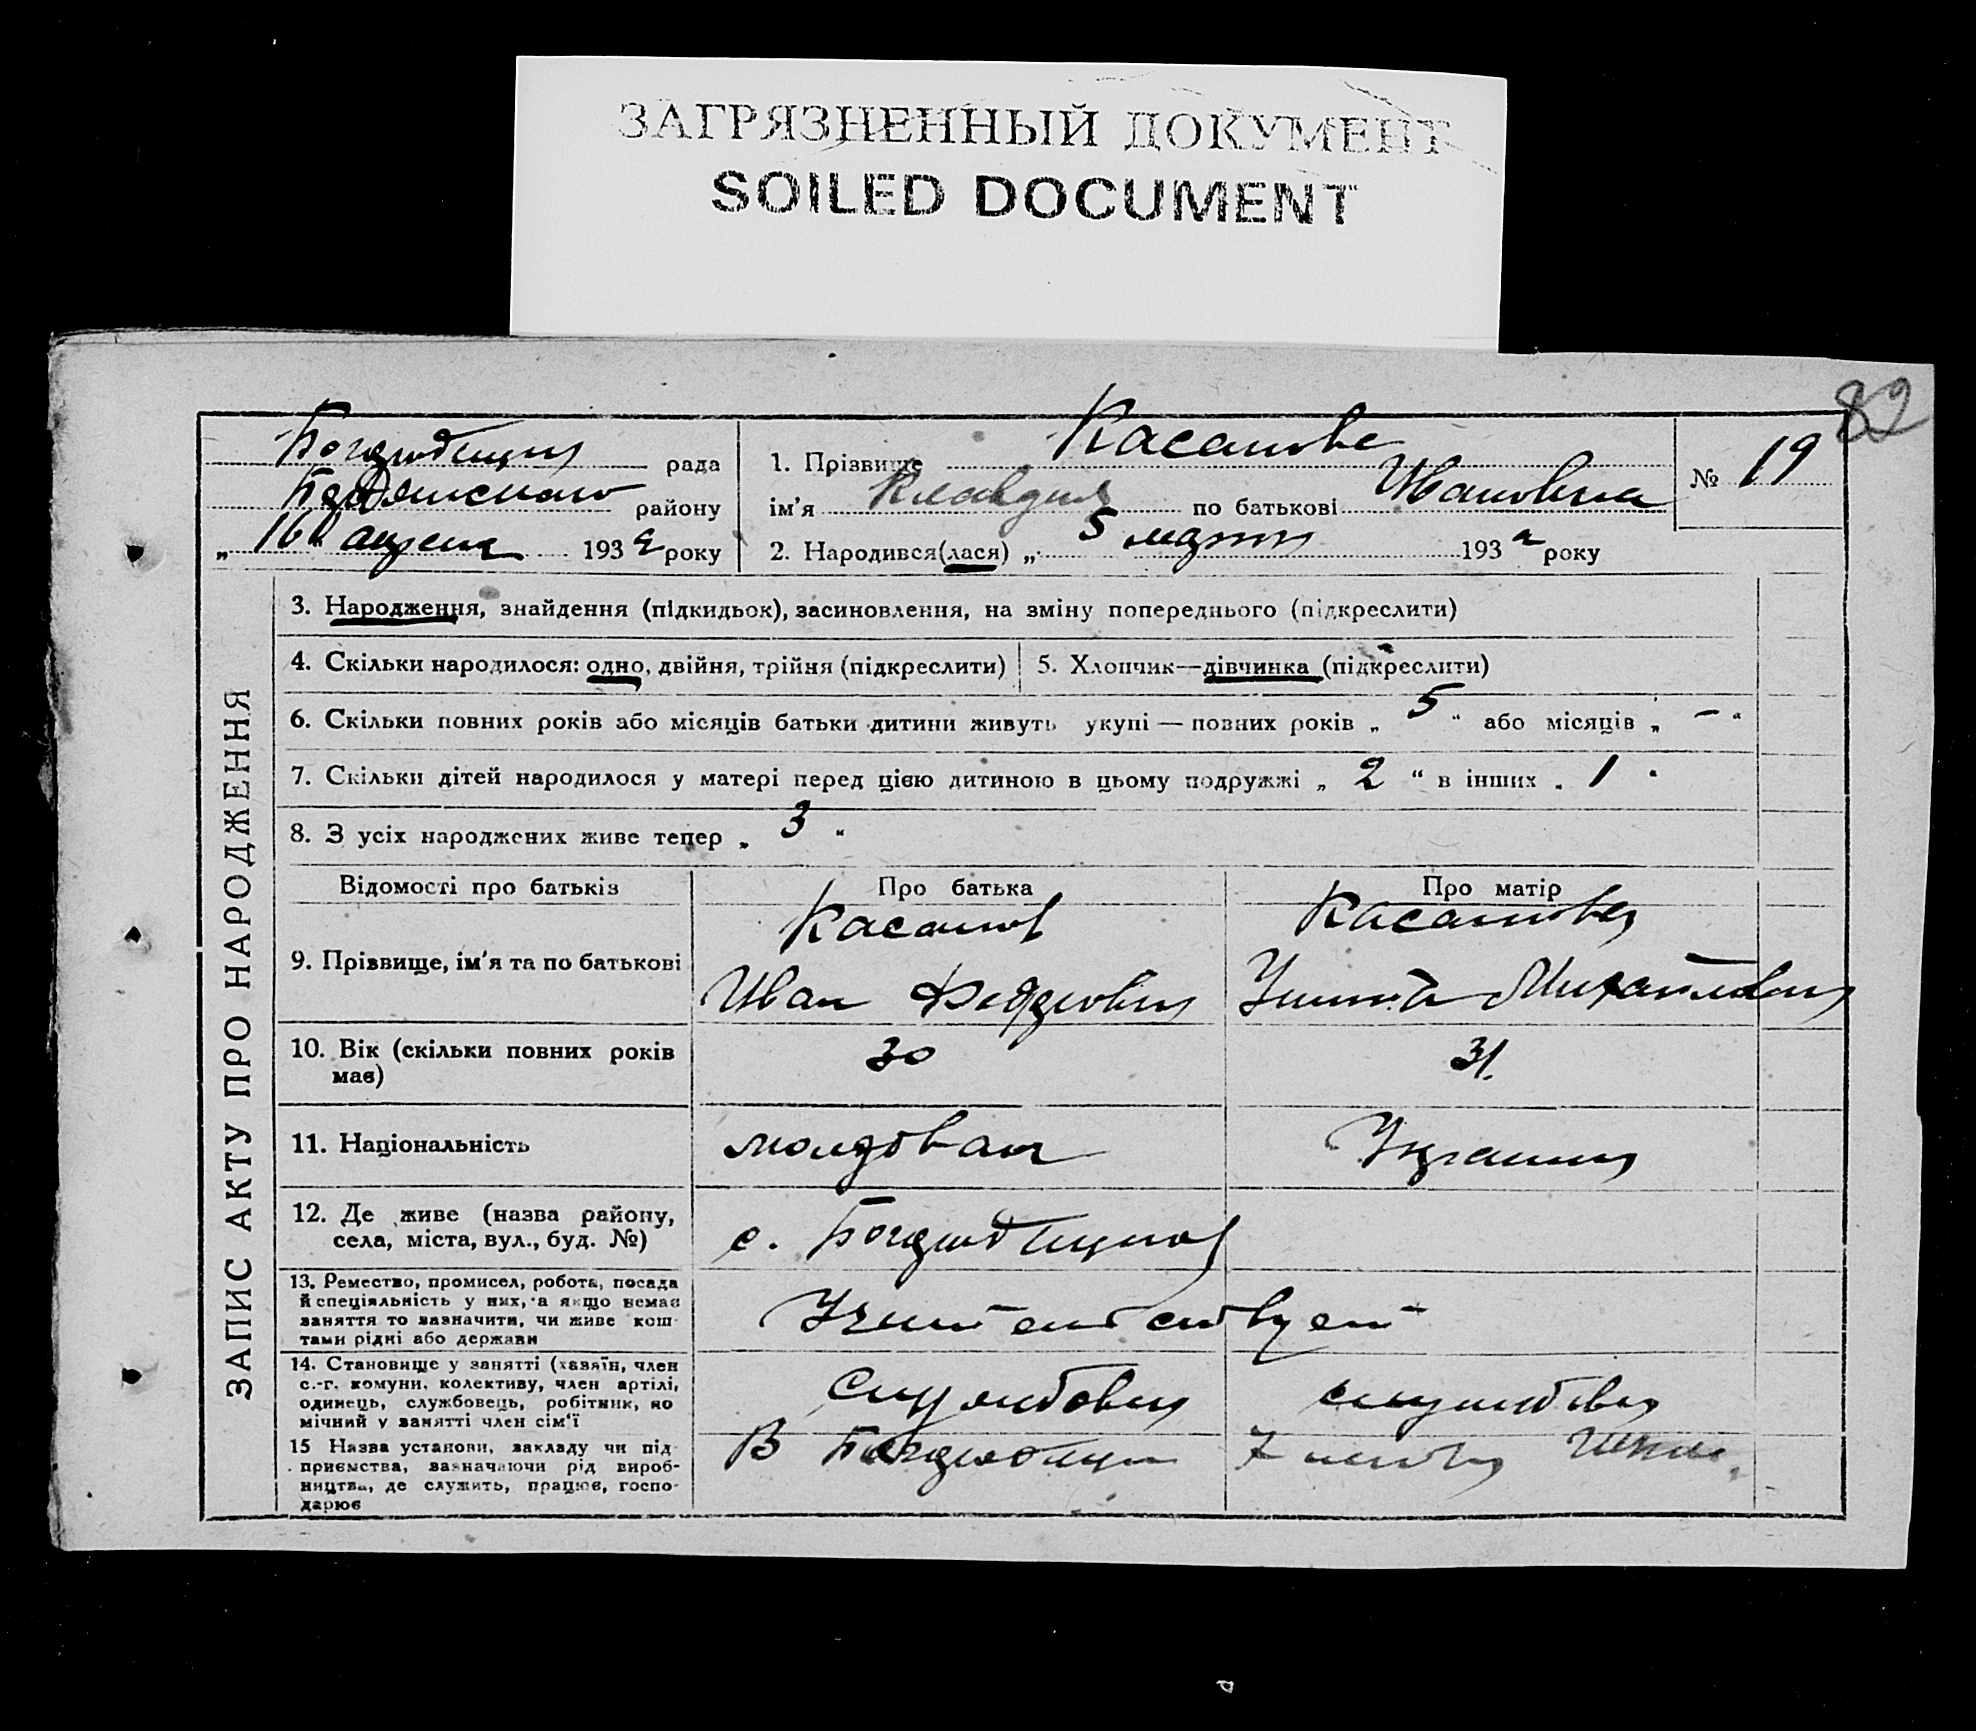 ЗАГРЯЗНЕННЫЙ ДОКУМЕНТ
SOILED DOCUMENT
82
рада
району
„ 16 " апреля 193 2 року
1. Прізвище Касанове
ім'я Клавдия по батькові Ивановна
2. Народився(лася) „ 5 марта 193 2 року
№ 19
ЗАПИС АКТУ ПРО НАРОДЖЕННЯ
3. Народження, знайдення (підкидьок), засиновлення, на зміну попереднього (підкреслити)
4. Скільки народилося: одно, двійня, трійня (підкреслити)
5. Хлопчик—дівчинка (підкреслити)
6. Скільки повних років або місяців батьки дитини живуть укупі — повних років „ 5 “ або місяців „ — “
7. Скільки дітей народилося у матері перед цією дитиною в цьому подружжі „ 2 “ в інших „ 1 "
8. З усіх народжених живе тепер „ 3 “
Відомості про батьків
Про батька
Про матір
9. Прізвище, ім'я та по батькові
Касанов
Иван
Касанова
Михайловна
10. Вік (скільки повних років
має)
30
31.
11. Національність
молдован
Украин
12. Де живе (назва району,
села, міста, вул., буд. №)
с.
13. Ремество, промисел, робота, посада
й спеціяльність у них, а якщо немає
заняття то зазначити, чи живе кош-
тами рідні або держави
Учительствует
14. Становище у занятті (хазяїн, член
с.-г. комуни, колективу, член артілі,
одинець, службовець, робітник, по-
мічний у занятті член сім'ї
15 Назва установи, закладу чи під-
приємства, зазначаючи рід вироб-
ництва, де служить, працює, госпо-
дарює
В